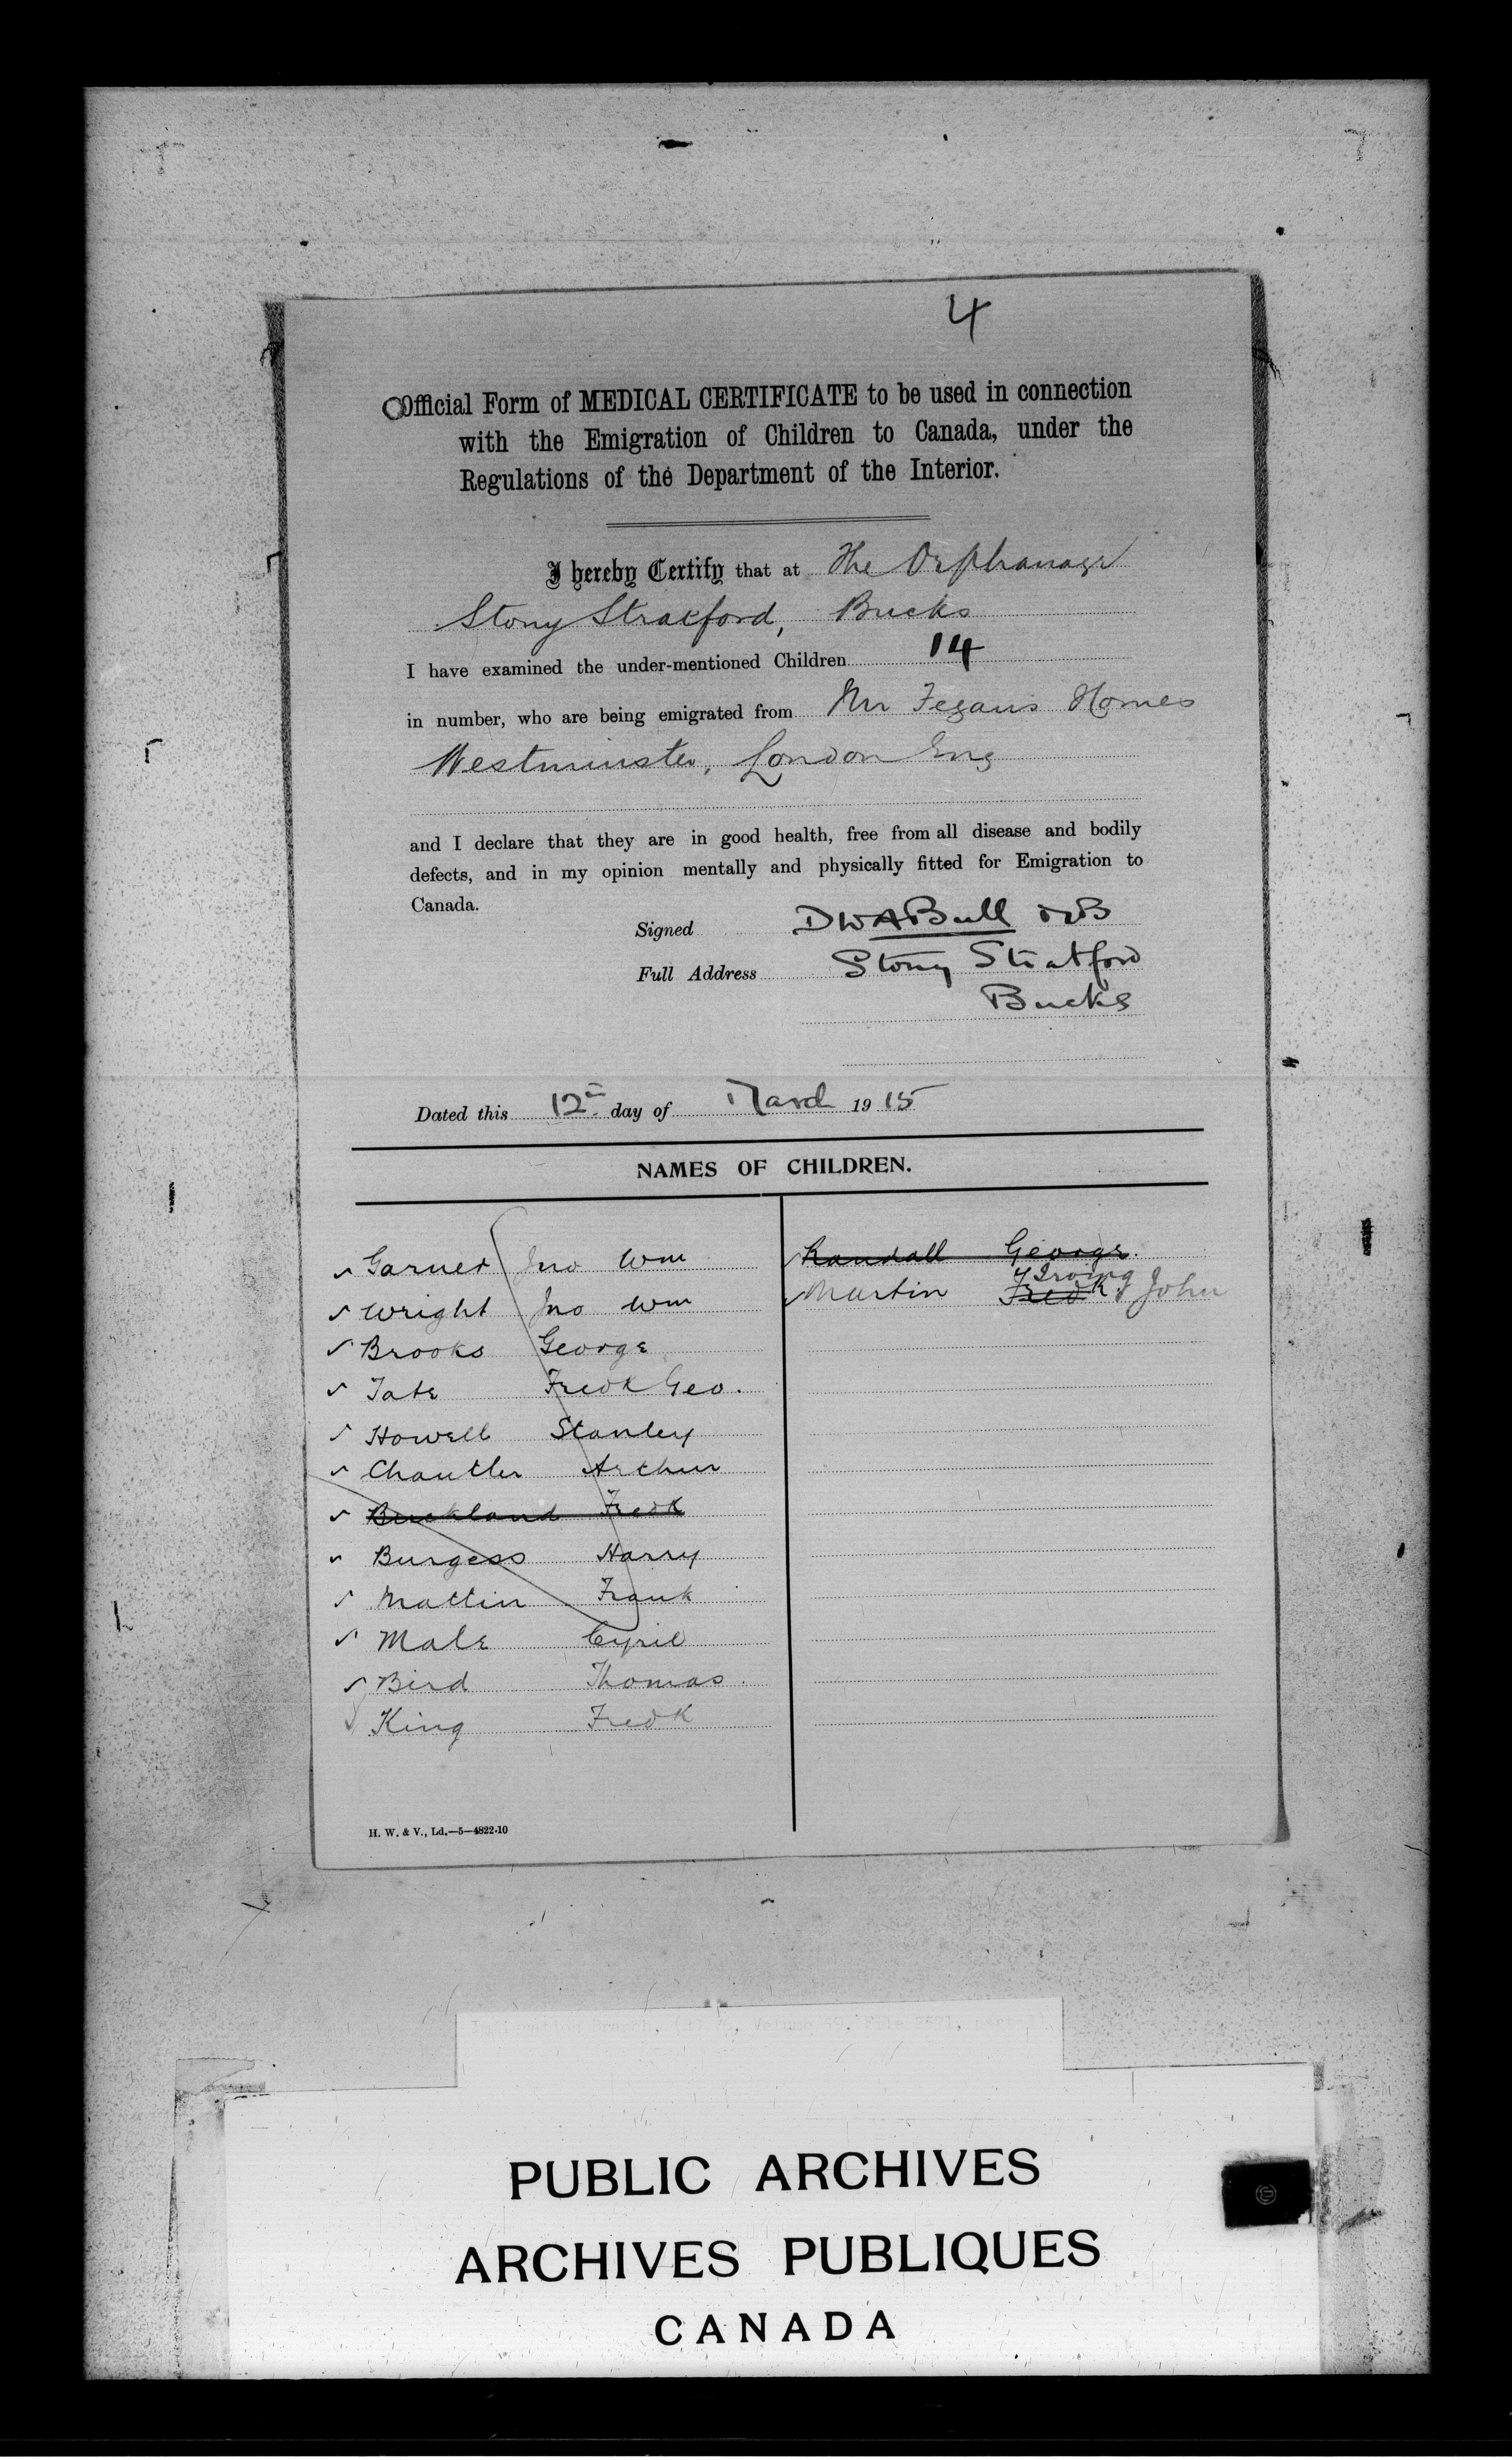 4
Official Form of MEDICAL CERTIFICATE to be used in connection
with the Emigration of Children to Canada, under the
Regulations of the Department of the Interior.
I hereby Certify that at The Orphanage
Stony Stratford, Bucks
I have examined the under-mentioned Children 14
in number, who are being emigrated from Mr Fegans Homes
Westminster, London Eng
and I declare that they are in good health, free from all disease and bodily
defects, and in my opinion mentally and physically fitted for Emigration to
Canada.
Signed DWABull
Full Address Stony Stratford
Bucks
Dated this 12th day of March 1915
NAMES OF CHILDREN.
Garner Jno Wm
Wright Jno Wm
Brooks George
Tate Fredk Geo.
Howell Stanley
Chantler Arthur
Buckland Fredk
Burgess Harry
Mattin Frank
Male Cyril
Bird Thomas.
King Fredk
Randall George.
Irving
Martin Fredk John
H. W. & V., Ld.—5—4822-10
PUBLIC ARCHIVES
ARCHIVES PUBLIQUES
CANADA